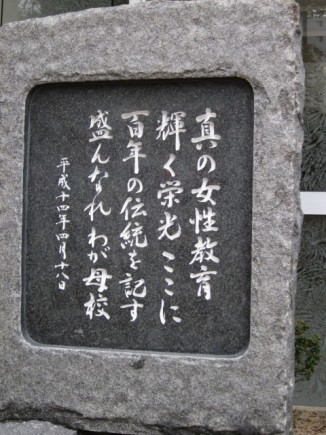 真の女性教育
輝く栄光ここに
百年の伝統を記す
盛んなれわが母校
平成十四年四月十八日